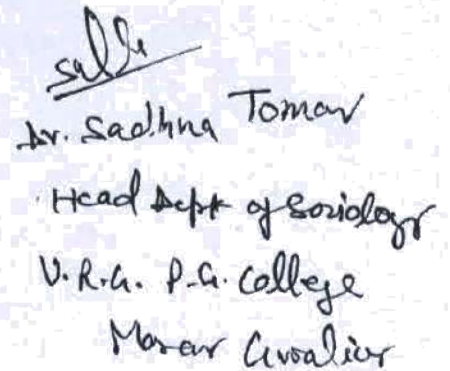 Dr. Sadhna Tomar
Head Dept of Sociology
V.R.G. P.G. College
Morar Gwalior